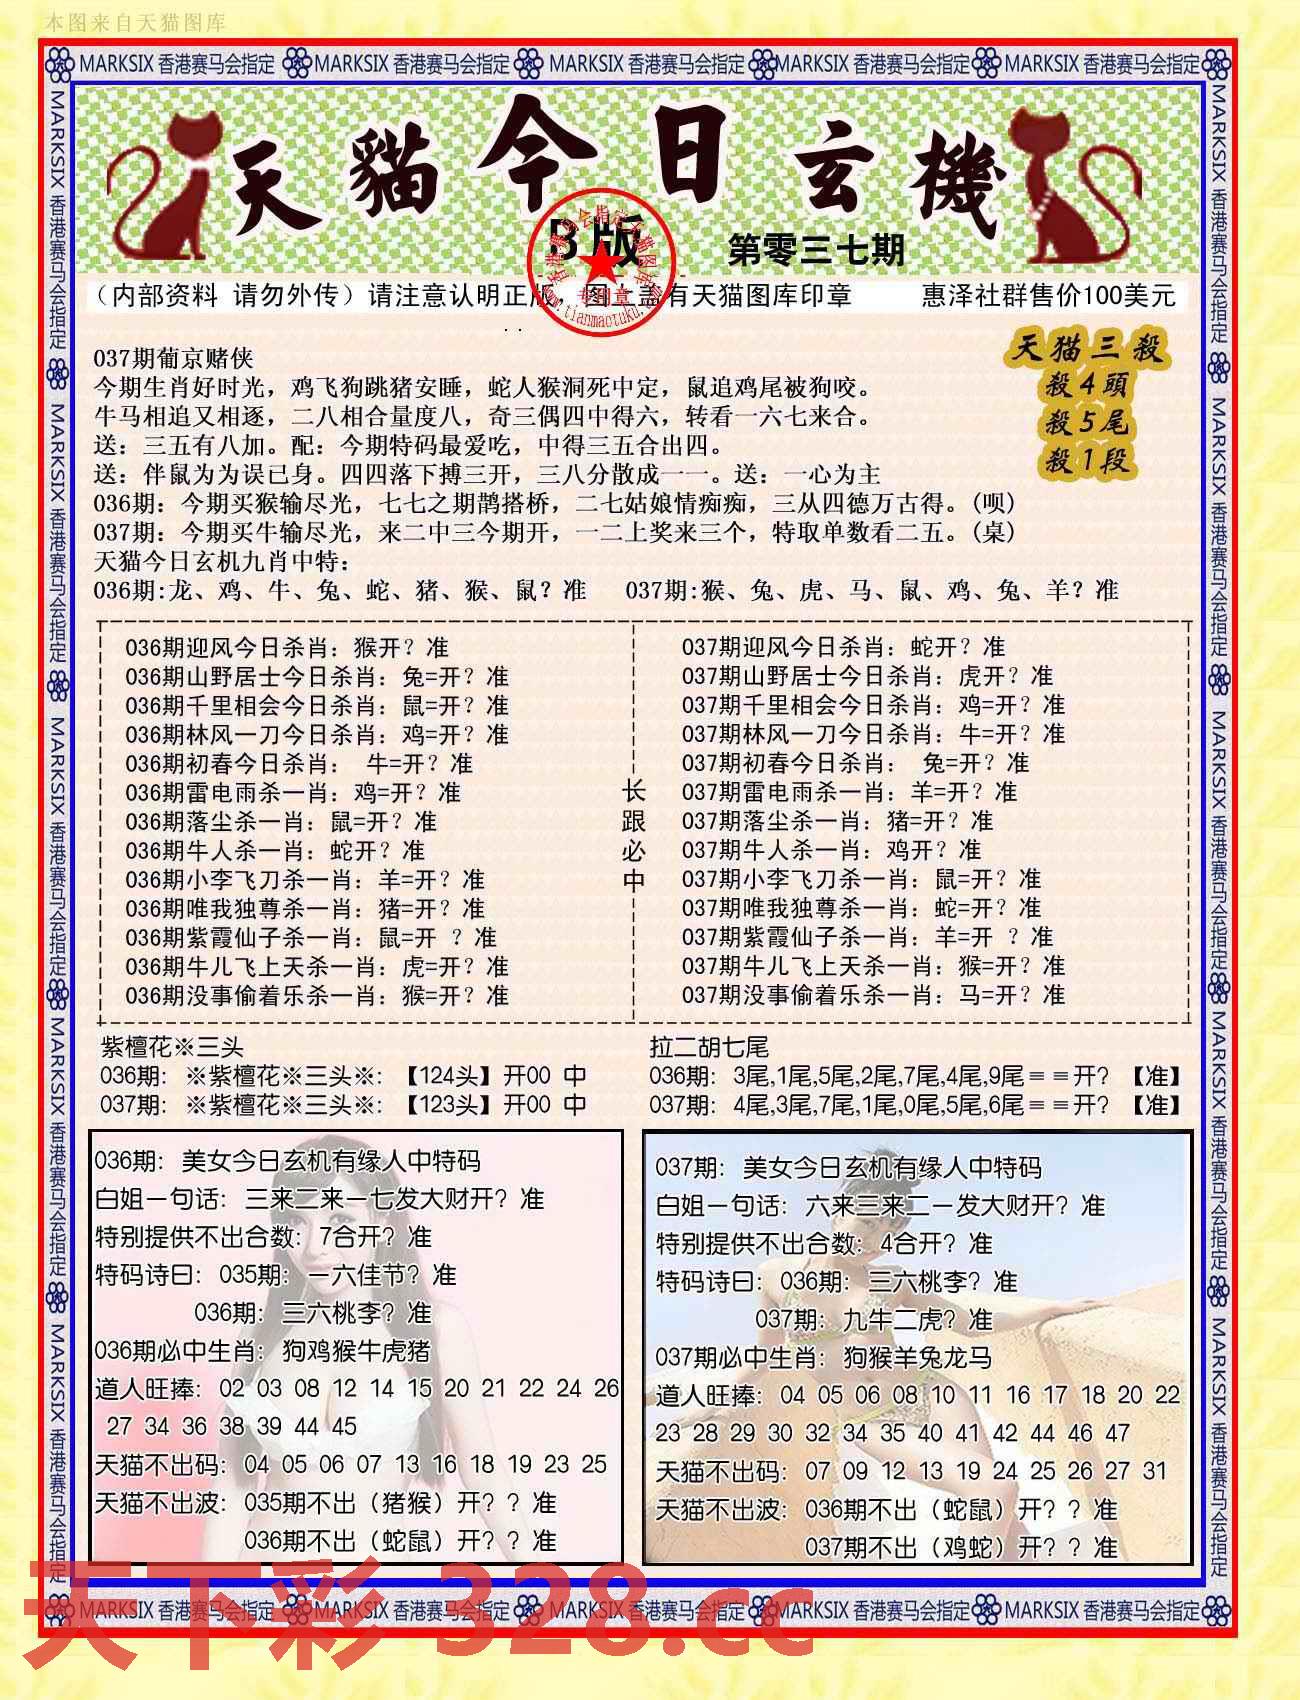 本图来自天猫图库
MARKSIX 香港赛马会指定 MARKSIX 香港赛马会指定 MARKSIX 香港赛马会指定 MARKSIX 香港赛马会指定 MARKSIX 香港赛马会指定
天貓今日玄機
B版
第零三七期
专用章
www.tianmaotuku.com
（内部资料 请勿外传）请注意认明正版，图上盖有天猫图库印章 惠泽社群售价100美元
天猫三殺
殺4頭
殺5尾
殺1段
037期葡京赌侠
今期生肖好时光，鸡飞狗跳猪安睡，蛇人猴洞死中定，鼠追鸡尾被狗咬。
牛马相追又相逐，二八相合量度八，奇三偶四中得六，转看一六七来合。
送：三五有八加。配：今期特码最爱吃，中得三五合出四。
送：伴鼠为为误己身。四四落下搏三开，三八分散成一一。送：一心为主
036期：今期买猴输尽光，七七之期鹊搭桥，二七姑娘情痴痴，三从四德万古得。(呗)
037期：今期买牛输尽光，来二中三今期开，一二上奖来三个，特取单数看二五。(桌)
天猫今日玄机九肖中特：
036期:龙、鸡、牛、兔、蛇、猪、猴、鼠？准 037期:猴、兔、虎、马、鼠、鸡、兔、羊？准
036期迎风今日杀肖：猴开？准
036期山野居士今日杀肖：兔=开？准
036期千里相会今日杀肖：鼠=开？准
036期林风一刀今日杀肖：鸡=开？准
036期初春今日杀肖： 牛=开？准
036期雷电雨杀一肖：鸡=开？准
036期落尘杀一肖：鼠=开？准
036期牛人杀一肖：蛇开？准
036期小李飞刀杀一肖：羊=开？准
036期唯我独尊杀一肖：猪=开？准
036期紫霞仙子杀一肖：鼠=开 ？准
036期牛儿飞上天杀一肖：虎=开？准
036期没事偷着乐杀一肖：猴=开？准
长
跟
必
中
037期迎风今日杀肖：蛇开？准
037期山野居士今日杀肖：虎开？准
037期千里相会今日杀肖：鸡=开？准
037期林风一刀今日杀肖：牛=开？准
037期初春今日杀肖： 兔=开？准
037期雷电雨杀一肖：羊=开？准
037期落尘杀一肖：猪=开？准
037期牛人杀一肖：鸡开？准
037期小李飞刀杀一肖：鼠=开？准
037期唯我独尊杀一肖：蛇=开？准
037期紫霞仙子杀一肖：羊=开 ？准
037期牛儿飞上天杀一肖：猴=开？准
037期没事偷着乐杀一肖：马=开？准
紫檀花※三头
036期：※紫檀花※三头※：【124头】开00 中
037期：※紫檀花※三头※：【123头】开00 中
拉二胡七尾
036期：3尾,1尾,5尾,2尾,7尾,4尾,9尾＝＝开？【准】
037期：4尾,3尾,7尾,1尾,0尾,5尾,6尾＝＝开？【准】
036期：美女今日玄机有缘人中特码
白姐一句话：三来二来一七发大财开？准
特别提供不出合数：7合开？准
特码诗曰：035期：一六佳节？准
036期：三六桃李？准
036期必中生肖：狗鸡猴牛虎猪
道人旺捧：02 03 08 12 14 15 20 21 22 24 26
27 34 36 38 39 44 45
天猫不出码：04 05 06 07 13 16 18 19 23 25
天猫不出波：035期不出（猪猴）开？？准
036期不出（蛇鼠）开？？准
037期：美女今日玄机有缘人中特码
白姐一句话：六来三来二一发大财开？准
特别提供不出合数：4合开？准
特码诗曰：036期：三六桃李？准
037期：九牛二虎？准
037期必中生肖：狗猴羊兔龙马
道人旺捧：04 05 06 08 10 11 16 17 18 20 22
23 28 29 30 32 34 35 40 41 42 44 46 47
天猫不出码：07 09 12 13 19 24 25 26 27 31
天猫不出波：036期不出（蛇鼠）开？？准
037期不出（鸡蛇）开？？准
MARKSIX 香港赛马会指定 MARKSIX 香港赛马会指定 MARKSIX 香港赛马会指定 MARKSIX 香港赛马会指定 MARKSIX 香港赛马会指定
MARKSIX 香港赛马会指定 MARKSIX 香港赛马会指定 MARKSIX 香港赛马会指定 MARKSIX 香港赛马会指定 MARKSIX 香港赛马会指定
天下彩 328.cc
MARKSIX 香港赛马会指定 MARKSIX 香港赛马会指定 MARKSIX 香港赛马会指定 MARKSIX 香港赛马会指定 MARKSIX 香港赛马会指定